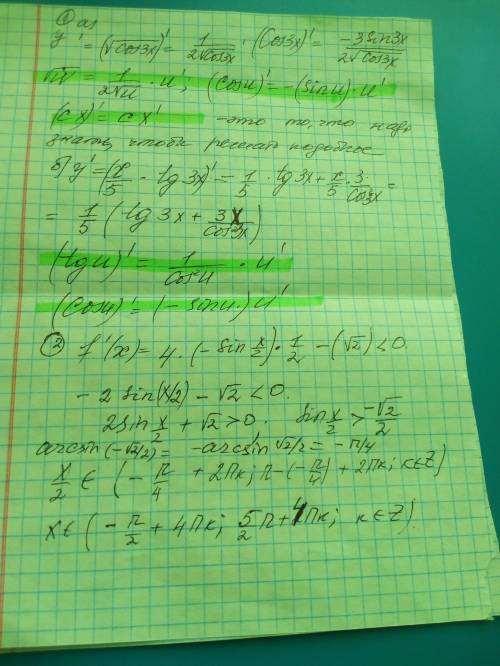 ① а)
y' = (√cos3x)' = 1/(2√cos3x) · (cos3x)' = -3sin3x/(2√cos3x)
√u' = 1/(2√u) · u'; (cosu)' = -(sinu) · u'
(cx)' = cx' - это то, что надо
знать, чтобы решать подобное
б) y' = (x/5 · tg3x)' = 1/5 · tg3x + x/5 · 3/cos3x =
= 1/5 (tg3x + 3x/cos²3x)
(tgu)' = 1/cos²u · u'
(cosu)' = (-sinu) · u'
② f'(x) = 4 · (-sin x/2) · 1/2 - (√2) < 0.
-2 sin(x/2) - √2 < 0.
2sin x/2 + √2 > 0. sin x/2 > -√2/2
arcsin(-√2/2) = -arcsin √2/2 = -π/4
x/2 ∈ (-π/4 + 2πk; π-(-π/4) + 2πk; k∈Z)
x ∈ (-π/2 + 4πk; 5/2 π + 4πk; k∈Z).